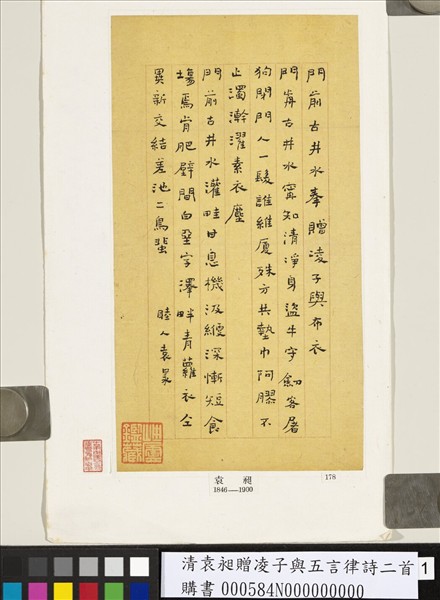 門前古井水奉贈凌子與布衣
門前古井水甯知清淨身盜牛字劍客屠
狗閉門人一髮誰維厦殊方共墊巾阿膠不
止濁澣濯素衣塵
門前古井水灌畦甘息機汲綆深慚短食
場焉肯肥壁間白堊字澤畔青蘿衣仝
異新交結差池二鳥蜚
睦人袁昶
袁昶
1846—1900
178
清袁昶贈凌子與五言律詩二首
購書 000584N000000000
1